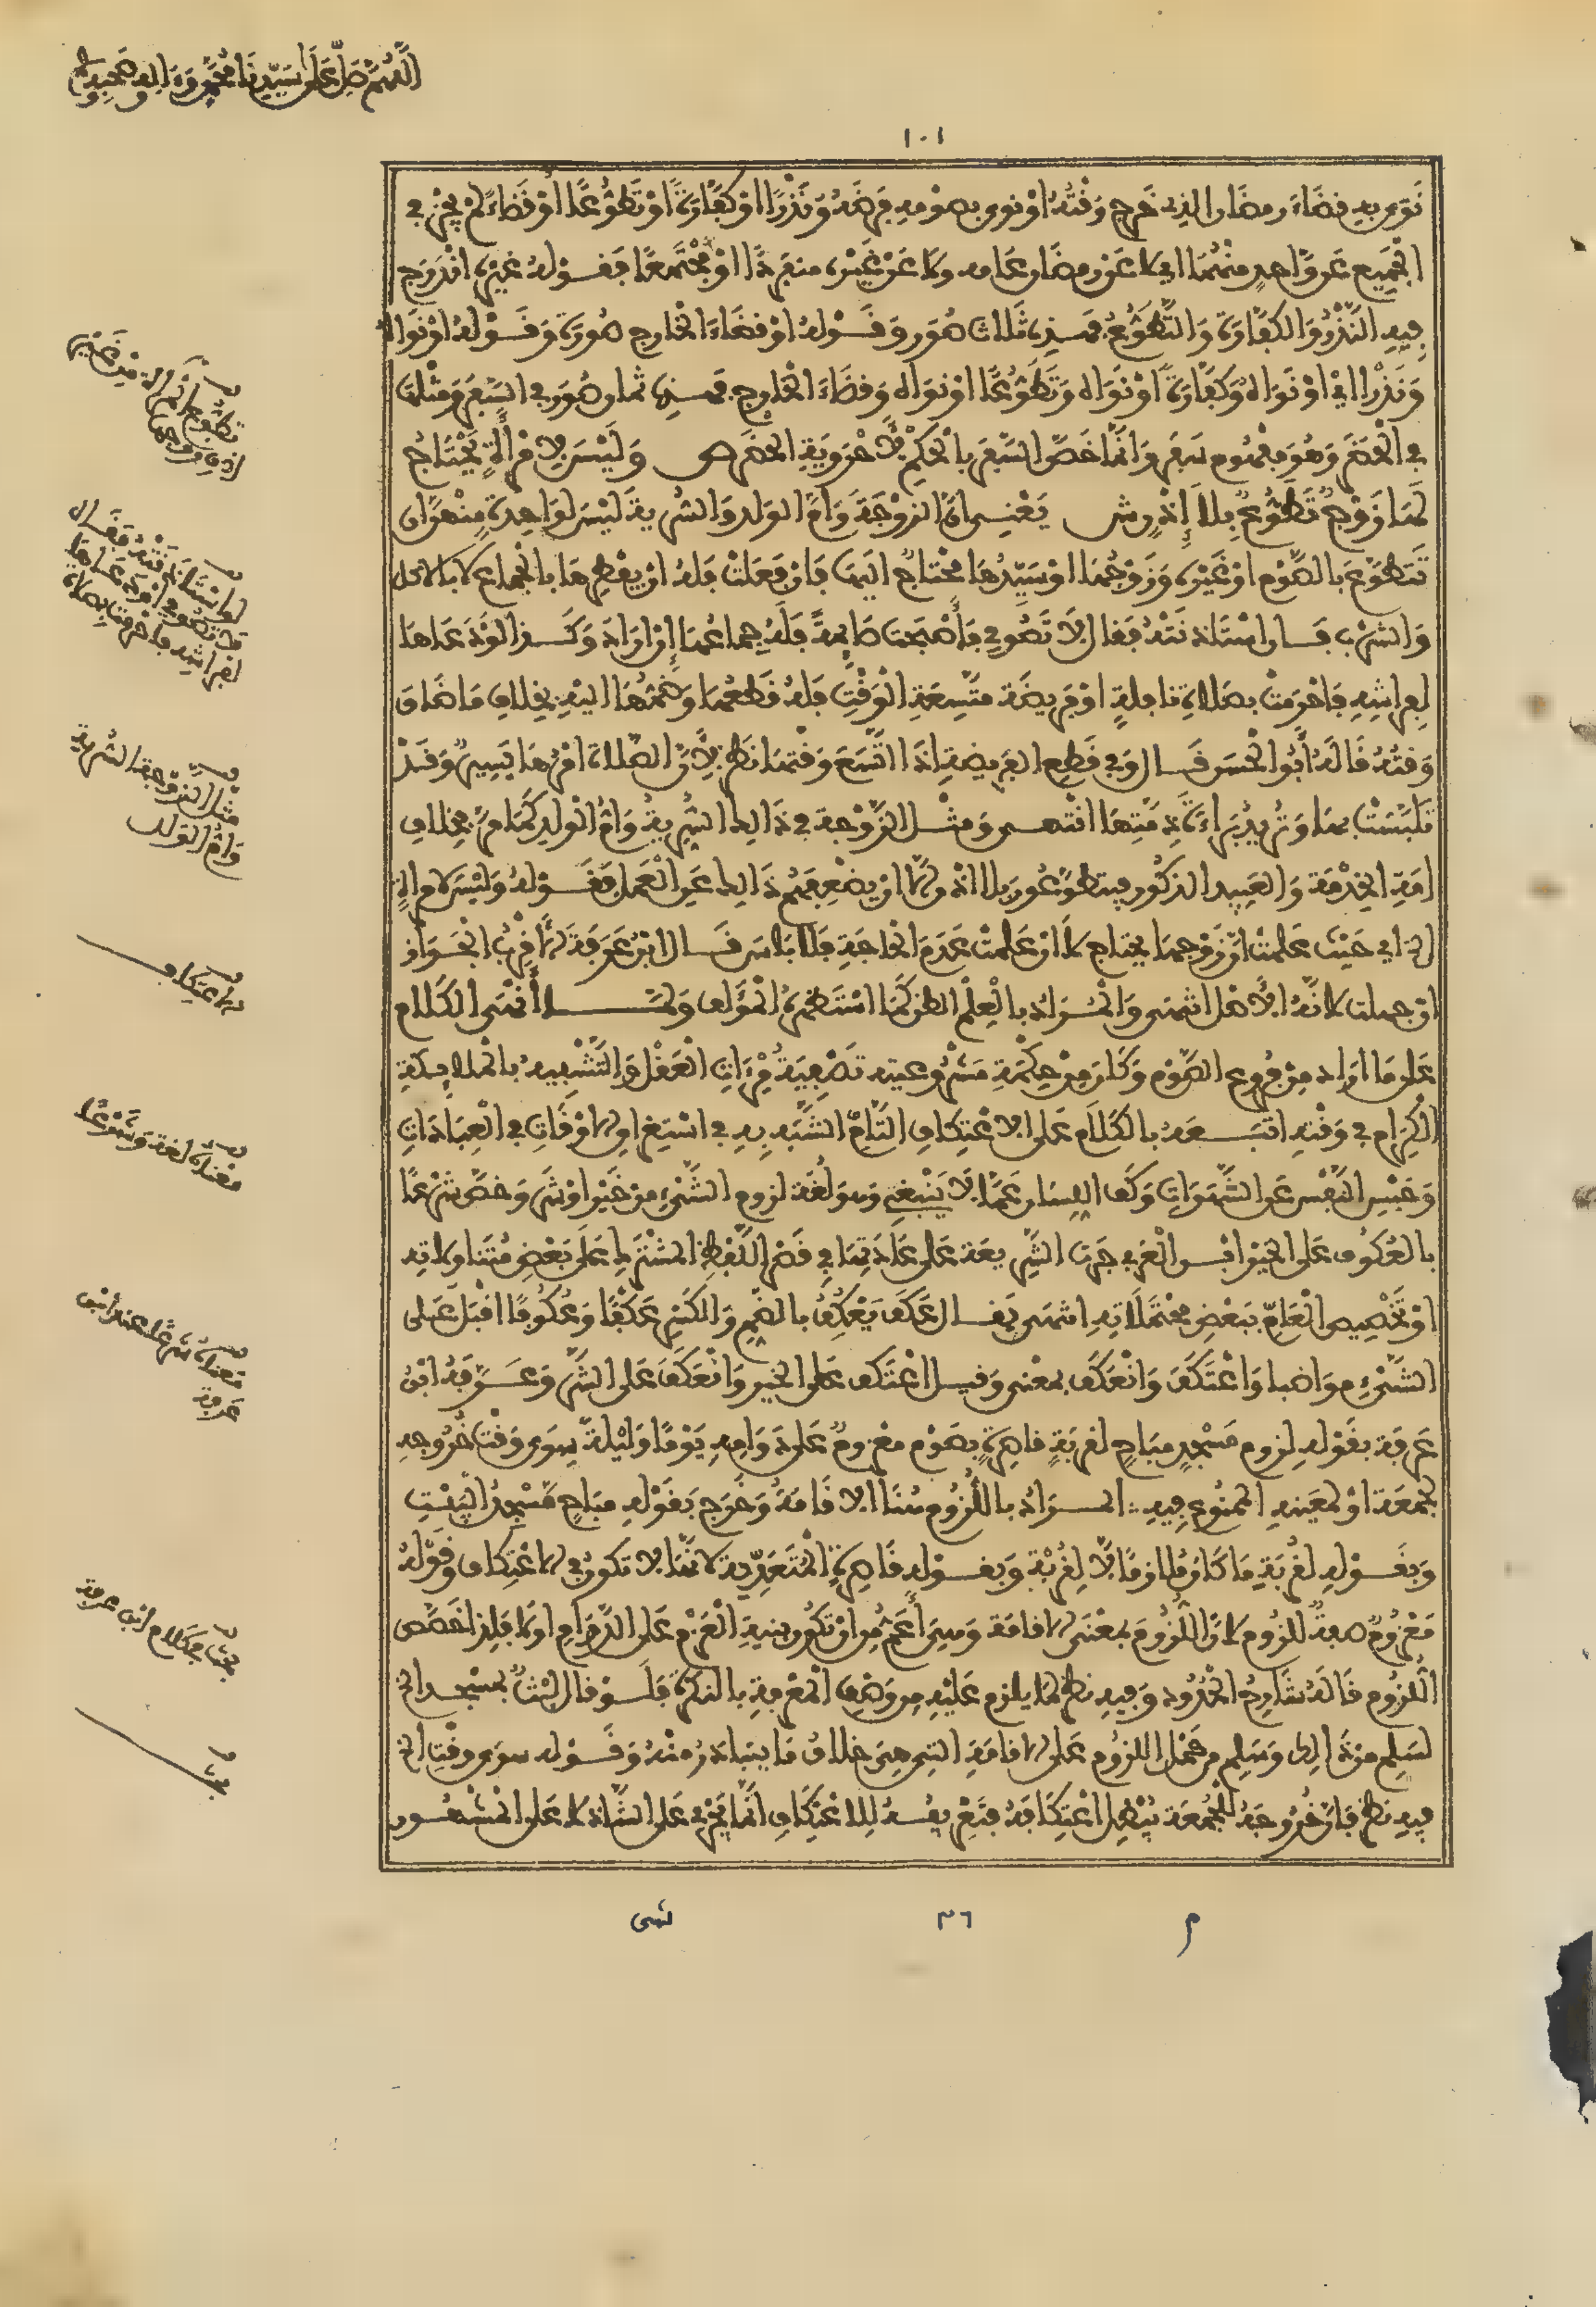 اللهم صل على سيدنا محمد وءاله وصحبه
١٠١
نَوَى به قضاء رمضان الذي خرج وَقْتُهُ أو نوى بصومه فرضه وَنَذْرًا أو كَفَّارَةً أَوْ تَطَوُّعًا أوْ قَضَاءً لم يجز في
الجميع عن واحد منهما أي لا عن رمضان عامه ولا عن غيره منفردًا أوْ مجتمعًا فقوله غيره اندرج
فيه النذر والكفارة والتطوع فهذه ثلاث صور وقوله أو قضاء الخارج صورة وقوله أو نواه
ونذرا أي أو نواه وكفارة أو نواه وتطوعًا أو نواه وقضاء الخارج فهذه ثمان صور في السفر ومثلها
في الحضر وهو مفهوم سفر وإنما خص السفر بالحكم لأحروية الحضر ص وليس لامرأة يحتاج
لها زوج تطوع بلا إذن ش يعني أن الزوجة وأم الولد والسرية ليس لواحدة منهن أن
تتطوع بالصوم أو غيره وزوجها أو سيدها محتاج إليها فإن فعلت فله أن يفطرها بالجماع لا بالأكل
والشرب قال استأذنته فقال لا تصومي فأصبحت صائمة فله جماعها إن أراد وكذا لو دعاها
لفراشه فأحرمت بصلاة نافلة أو فريضة متسعة الوقت فله قطعها وضمها إليه بخلاف ما ضاق
وقته قاله أبو الحسن قال وفي قطع الفريضة إذا اتسع وقتها نظر لأن الصلاة أمرها يسير وقد
تلبست بها وتريد براءة ذمتها انتهى ومثل الزوجة في ذلك السرية وأم الولد كما مر بخلاف
أمة الخدمة والعبيد الذكور فيتطوعون بلا إذن إلا أن يضعفهم ذلك عن العمل فقوله وليس لامرأة
الخ أي حيث علمت أن زوجها يحتاج لا إن علمت عدم الحاجة فلا بأس قال ابن عرفة الأقرب الجواز
إن جهلت لأنه الأصل انتهى والمراد بالعلم الظن كما استظهره المؤلف ولما أنهى الكلام
على ما أراد من فروع الصوم وكان من حكمة مشروعيته تصفية مرءات العقل والتشبيه بالملائكة
الكرام في وقته أتبعه بالكلام على الاعتكاف التام الشبه به في استغراق الأوقات في العبادات
وحبس النفس عن الشهوات وكف اللسان عما لا ينبغي وهو لغة لزوم الشيء من خير أو شر وخص شرعا
بالعكوف على الخير ابن العربي جرت الشريعة على عادتها في قصر اللفظ المشترك على بعض متناولاته
أو تخصيص العام ببعض محتملاته انتهى يقال عكف يعكف بالضم والكسر عكفا وعكوفا أقبل على
الشيء مواظبا واعتكف وانعكف بمعنى وقيل اعتكف على الخير وانعكف على الشر وعرفه ابن
عرفة بقوله لزوم مسجد مباح لقربة قاصرة بصوم معزوم على دوامه يوما وليلة سوى وقت خروجه
لجمعة أو لمعينه الممنوع فيه المراد باللزوم هنا الإقامة وخرج بقوله مباح مسجد البيت
وبقوله لقربة ما كان ملازما لا لقربة وبقوله قاصرة المتعدية لأنها لا تكون في الاعتكاف وقوله
معزوم صفة للزوم لأن اللزوم بمعنى الإقامة وهي أعم من أن تكون بنية العزم على الدوام أولا فلذا خصص
اللزوم قاله شارح الحدود وفيه نظر لما يلزم عليه من وصف المعرفة بالنكرة فلو قال لبث بمسجد الخ
لسلم من ذلك وسلم من حمل اللزوم على الإقامة التي هي خلاف ما يتبادر منه وقوله سوى وقت الخ
فيه نظر فإن خروجه للجمعة يبطل اعتكافه فتعريفه للاعتكاف إنما يجري على الشاذ لا على المشهور
لو استأذنته فقال
لا تصومي أو دعاها
لفراشه فأحرمت بصلاة
مثل الزوجة السرية
وأم الولد
الاعتكاف
معناه لغة وشرعا
معناه شرعا عند ابن
عرفة
بحث في كلام ابن عرفة
بحث
م
٣٦